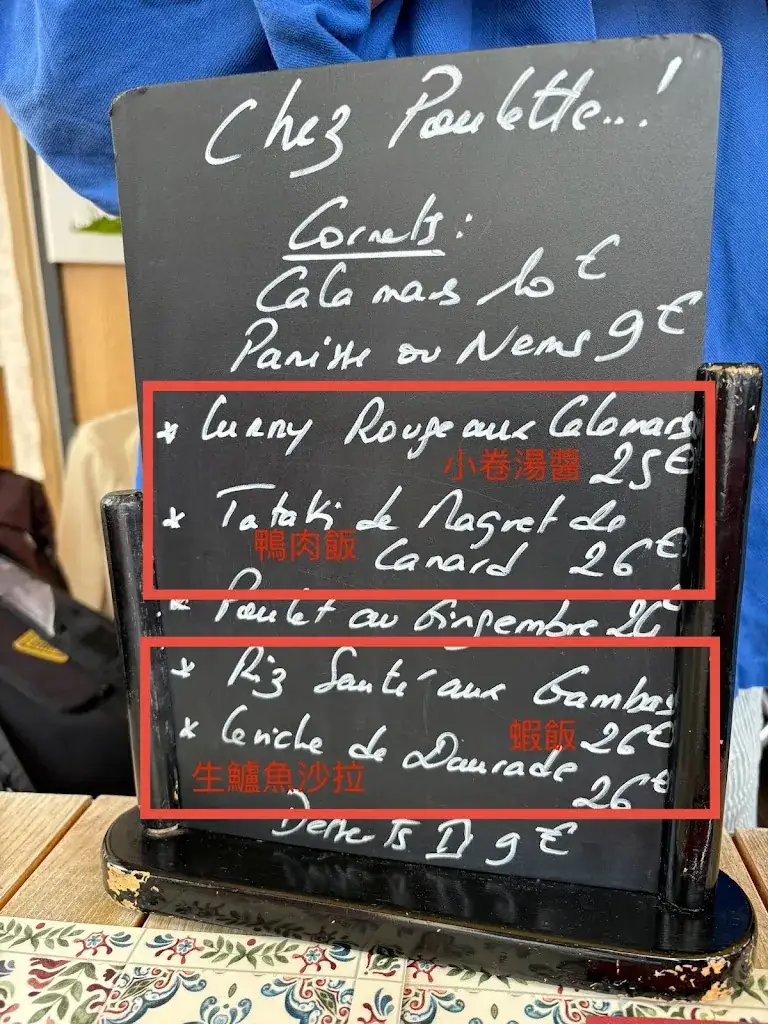 Chez Poulette...!
Cornets :
Calamars 10€
Panisse ou Nems 9€
* Curry Rouge aux Calamars
小卷湯醬 25€
* Tataki de Magret de
鴨肉飯 Canard 26€
* Poulet au Gingembre 26€
* Riz Sauté aux Gambas
蝦飯 26€
* Ceviche de Daurade
生鱸魚沙拉 26€
Desserts 9€